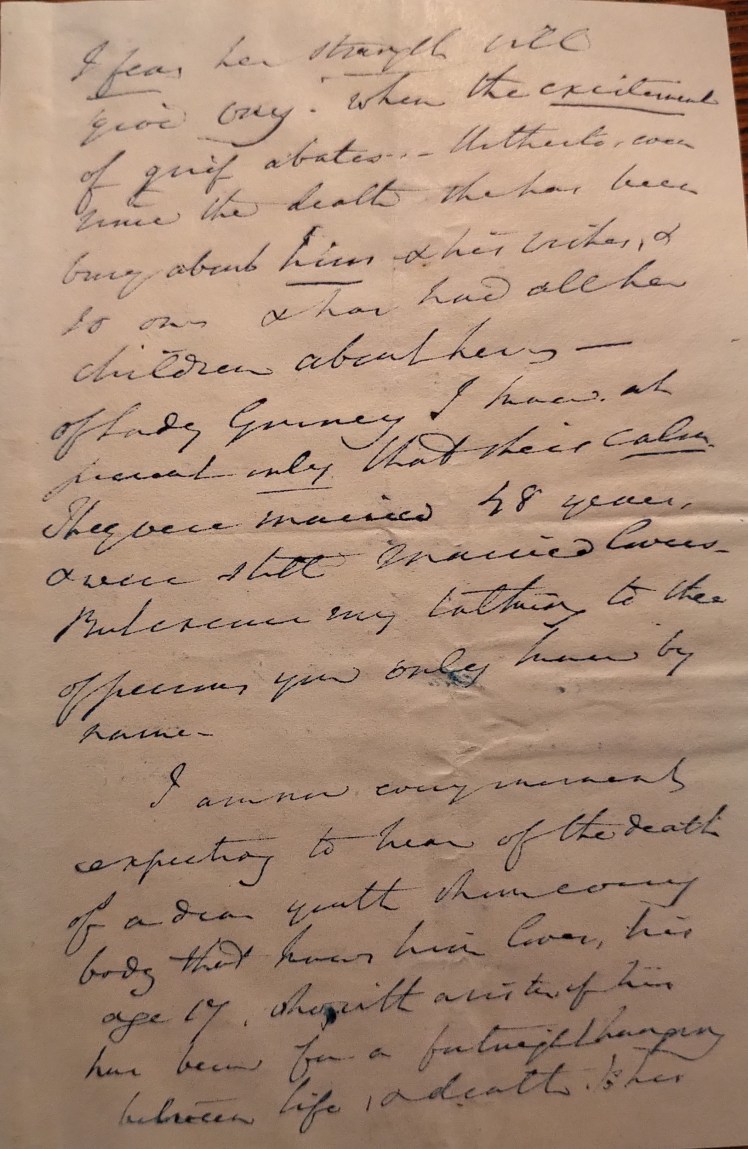 I fear her strength will
give way. When the excitement
of grief abates. - Hitherto, even
since the death she has been
busy about him & his wishes, &
so on & has had all her
children about her -
of Lady Gurney I know at
present only that she is calm.
They were married 48 years,
& were still married lovers -
But excuse my talking to thee
of persons you only know by
name -
I am now every moment
expecting to hear of the death
of a dear youth whom every
body that knows him loves, his
age 17, who with a sister of his
has been for a fortnight hanging
between life, & death. Is her